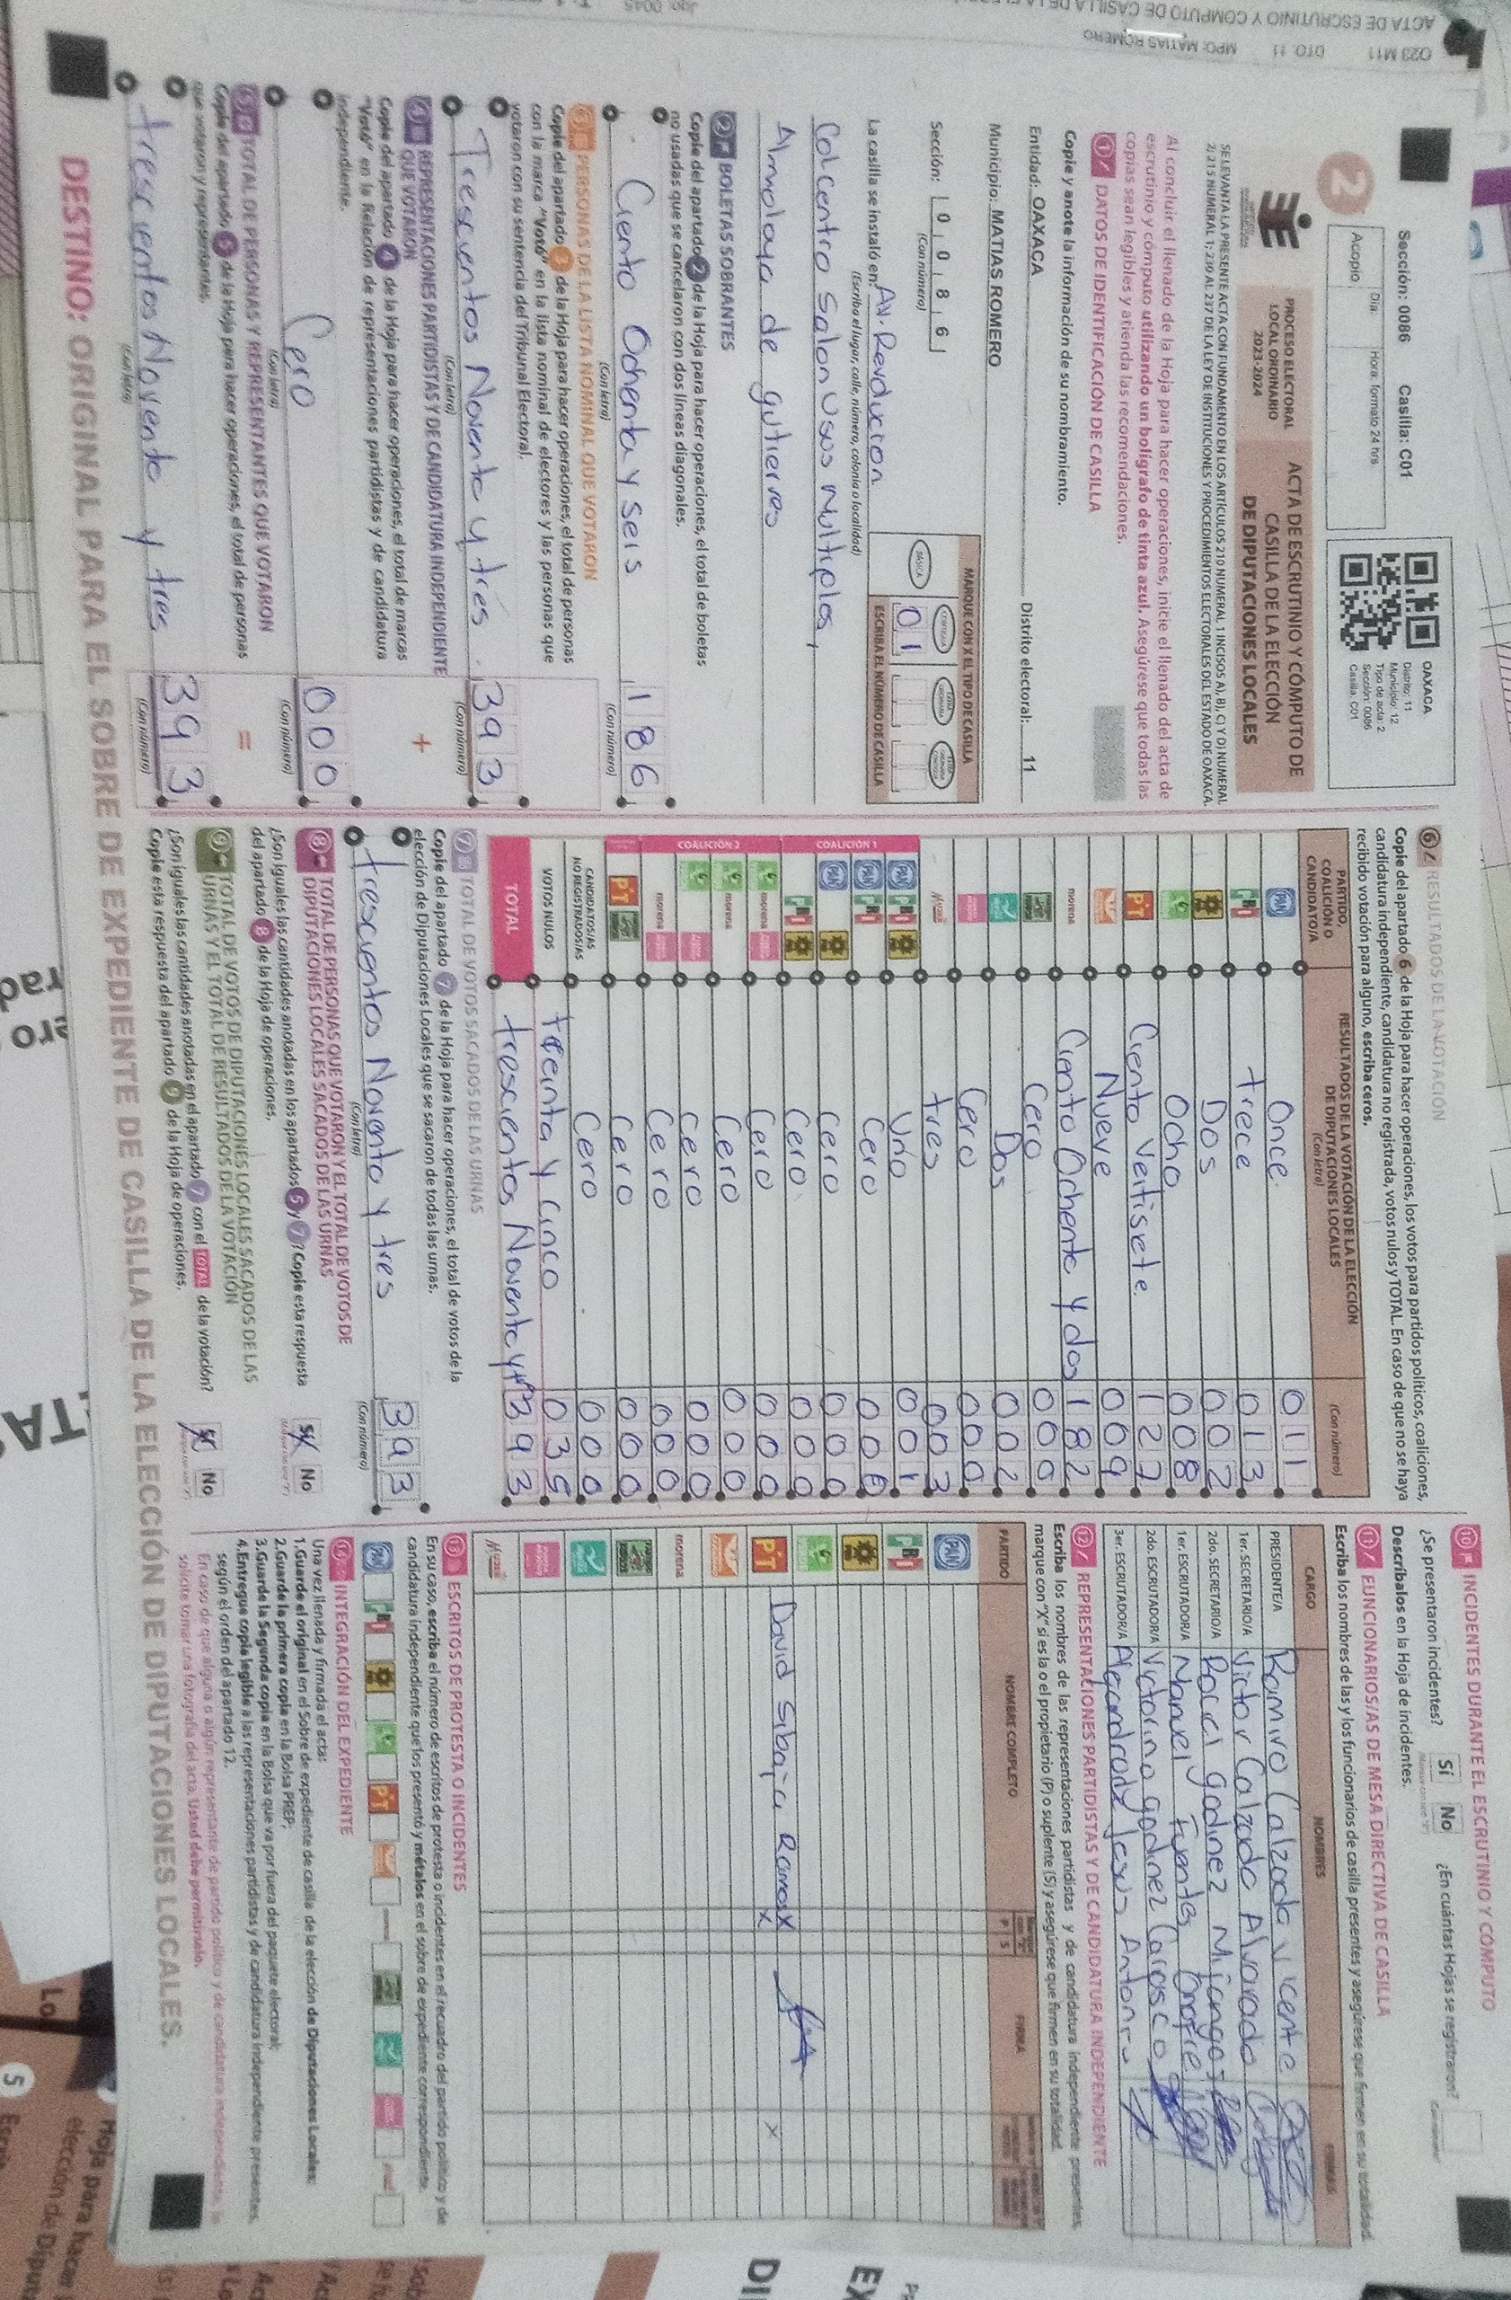 Sección: 0086 Casilla: C01
Acopio Día: Hora: formato 24 hrs
OAXACA
Distrito: 11
Municipio: 12
Tipo de acta: 2
Sección: 0086
Casilla: C01
2
PROCESO ELECTORAL
LOCAL ORDINARIO
2023-2024
ACTA DE ESCRUTINIO Y CÓMPUTO DE
CASILLA DE LA ELECCIÓN
DE DIPUTACIONES LOCALES
SE LEVANTA LA PRESENTE ACTA CON FUNDAMENTO EN LOS ARTÍCULOS 210 NUMERAL 1 INCISOS A), B), C) Y D) NUMERAL
2; 215 NUMERAL 1; 230 AL 237 DE LA LEY DE INSTITUCIONES Y PROCEDIMIENTOS ELECTORALES DEL ESTADO DE OAXACA.
Al concluir el llenado de la Hoja para hacer operaciones, inicie el llenado del acta de
escrutinio y cómputo utilizando un bolígrafo de tinta azul. Asegúrese que todas las
copias sean legibles y atienda las recomendaciones.
1 DATOS DE IDENTIFICACIÓN DE CASILLA
Copie y anote la información de su nombramiento.
Entidad: OAXACA Distrito electoral: 11
Municipio: MATIAS ROMERO
Sección: 0 0 8 6
(Con número)
MARQUE CON X EL TIPO DE CASILLA
BÁSICA
ESCRIBA EL NÚMERO DE CASILLA
01
La casilla se instaló en: Av. Revolucion
(Escriba el lugar, calle, número, colonia o localidad)
Col centro Salon Usos Multiplos,
Almoloya de gutierres
2 BOLETAS SOBRANTES
Copie del apartado 2 de la Hoja para hacer operaciones, el total de boletas
no usadas que se cancelaron con dos líneas diagonales.
Ciento Ochenta y seis 186
(Con letra) (Con número)
3 PERSONAS DE LA LISTA NOMINAL QUE VOTARON
Copie del apartado 3 de la Hoja para hacer operaciones, el total de personas
con la marca "Votó" en la lista nominal de electores y las personas que
votaron con su sentencia del Tribunal Electoral.
Trescientos Novente y tres. 393
(Con letra) (Con número)
4 REPRESENTACIONES PARTIDISTAS Y DE CANDIDATURA INDEPENDIENTE
QUE VOTARON +
Copie del apartado 4 de la Hoja para hacer operaciones, el total de marcas
"Votó" en la Relación de representaciones partidistas y de candidatura
independiente.
Cero 000
(Con letra) (Con número)
5 TOTAL DE PERSONAS Y REPRESENTANTES QUE VOTARON =
Copie del apartado 5 de la Hoja para hacer operaciones, el total de personas
que votaron y representantes.
trescientos Novente y tres 393
(Con letra) (Con número)
6 RESULTADOS DE LA VOTACIÓN
Copie del apartado 6 de la Hoja para hacer operaciones, los votos para partidos políticos, coaliciones,
candidatura independiente, candidatura no registrada, votos nulos y TOTAL. En caso de que no se haya
recibido votación para alguno, escriba ceros.
PARTIDO, COALICIÓN O CANDIDATO/A RESULTADOS DE LA VOTACIÓN DE LA ELECCIÓN DE DIPUTACIONES LOCALES (Con letra) (Con número)
PAN Once. 011
PRI trece 013
Dos 002
Ocho 008
PT Ciento Veitisete. 127
Nueve 009
morena Ciento Ochente y dos 182
Cero 000
Dos 002
Cero 000
tres 003
COALICIÓN 1
PAN PRI Uno 001
PAN PRI Cero 000
PAN Cero 000
PRI Cero 000
COALICIÓN 2
morena Cero 000
morena Cero 000
Cero 000
morena Cero 000
PT Cero 000
CANDIDATOS/AS NO REGISTRADOS/AS Cero 000
VOTOS NULOS treinta y cinco 035
TOTAL trescientos Novente y tres 393
7 TOTAL DE VOTOS SACADOS DE LAS URNAS
Copie del apartado 7 de la Hoja para hacer operaciones, el total de votos de la
elección de Diputaciones Locales que se sacaron de todas las urnas.
trescientos Novento y tres 393
(Con letra) (Con número)
8 TOTAL DE PERSONAS QUE VOTARON Y EL TOTAL DE VOTOS DE
DIPUTACIONES LOCALES SACADOS DE LAS URNAS
¿Son iguales las cantidades anotadas en los apartados 5 y 7? Copie esta respuesta
del apartado 8 de la Hoja de operaciones. Sí X No
9 TOTAL DE VOTOS DE DIPUTACIONES LOCALES SACADOS DE LAS
URNAS Y EL TOTAL DE RESULTADOS DE LA VOTACIÓN
¿Son iguales las cantidades anotadas en el apartado 7 con el TOTAL de la votación?
Copie esta respuesta del apartado 9 de la Hoja de operaciones. Sí X No
10 INCIDENTES DURANTE EL ESCRUTINIO Y CÓMPUTO
¿Se presentaron incidentes? Sí No ¿En cuántas Hojas se registraron?
Descríbalos en la Hoja de incidentes.
11 FUNCIONARIOS/AS DE MESA DIRECTIVA DE CASILLA
Escriba los nombres de las y los funcionarios de casilla presentes y asegúrese que firmen en su totalidad.
CARGO NOMBRES FIRMAS
PRESIDENTE/A Ramiro Calzada Vicente
1er. SECRETARIO/A Victor Calzado Alvarado
2do. SECRETARIO/A Rocici godinez Mijangos
1er. ESCRUTADOR/A Manuel Fuentes Onofre
2do. ESCRUTADOR/A Victorino godinez Carasco
3er. ESCRUTADOR/A Alejandrode Jesus Antonio
12 REPRESENTACIONES PARTIDISTAS Y DE CANDIDATURA INDEPENDIENTE
Escriba los nombres de las representaciones partidistas y de candidatura independiente presentes,
marque con "X" si es la o el propietario (P) o suplente (S) y asegúrese que firmen en su totalidad.
PARTIDO NOMBRE COMPLETO P S FIRMA
PAN
PRI
PT David Sibaja Ramos X X X
morena
13 ESCRITOS DE PROTESTA O INCIDENTES
En su caso, escriba el número de escritos de protesta o incidentes en el recuadro del partido político y de
candidatura independiente que los presentó y métalos en el sobre de expediente correspondiente.
PAN PRI PT
INTEGRACIÓN DEL EXPEDIENTE
Una vez llenada y firmada el acta:
1.Guarde el original en el Sobre de expediente de casilla de la elección de Diputaciones Locales;
2.Guarde la primera copia en la Bolsa PREP;
3.Guarde la Segunda copia en la Bolsa que va por fuera del paquete electoral;
4.Entregue copia legible a las representaciones partidistas y de candidatura independiente presentes,
según el orden del apartado 12.
En caso de que alguna o algún representante de partido político y de candidatura independiente, le
solicite tomar una fotografía del acta. Usted debe permitírselo.
DESTINO: ORIGINAL PARA EL SOBRE DE EXPEDIENTE DE CASILLA DE LA ELECCIÓN DE DIPUTACIONES LOCALES.
O23 M11 DTO. 11 MPO: MATIAS ROMERO
ACTA DE ESCRUTINIO Y COMPUTO DE CASILLA DE LA
Hoja para hacer
elección de Diput
5